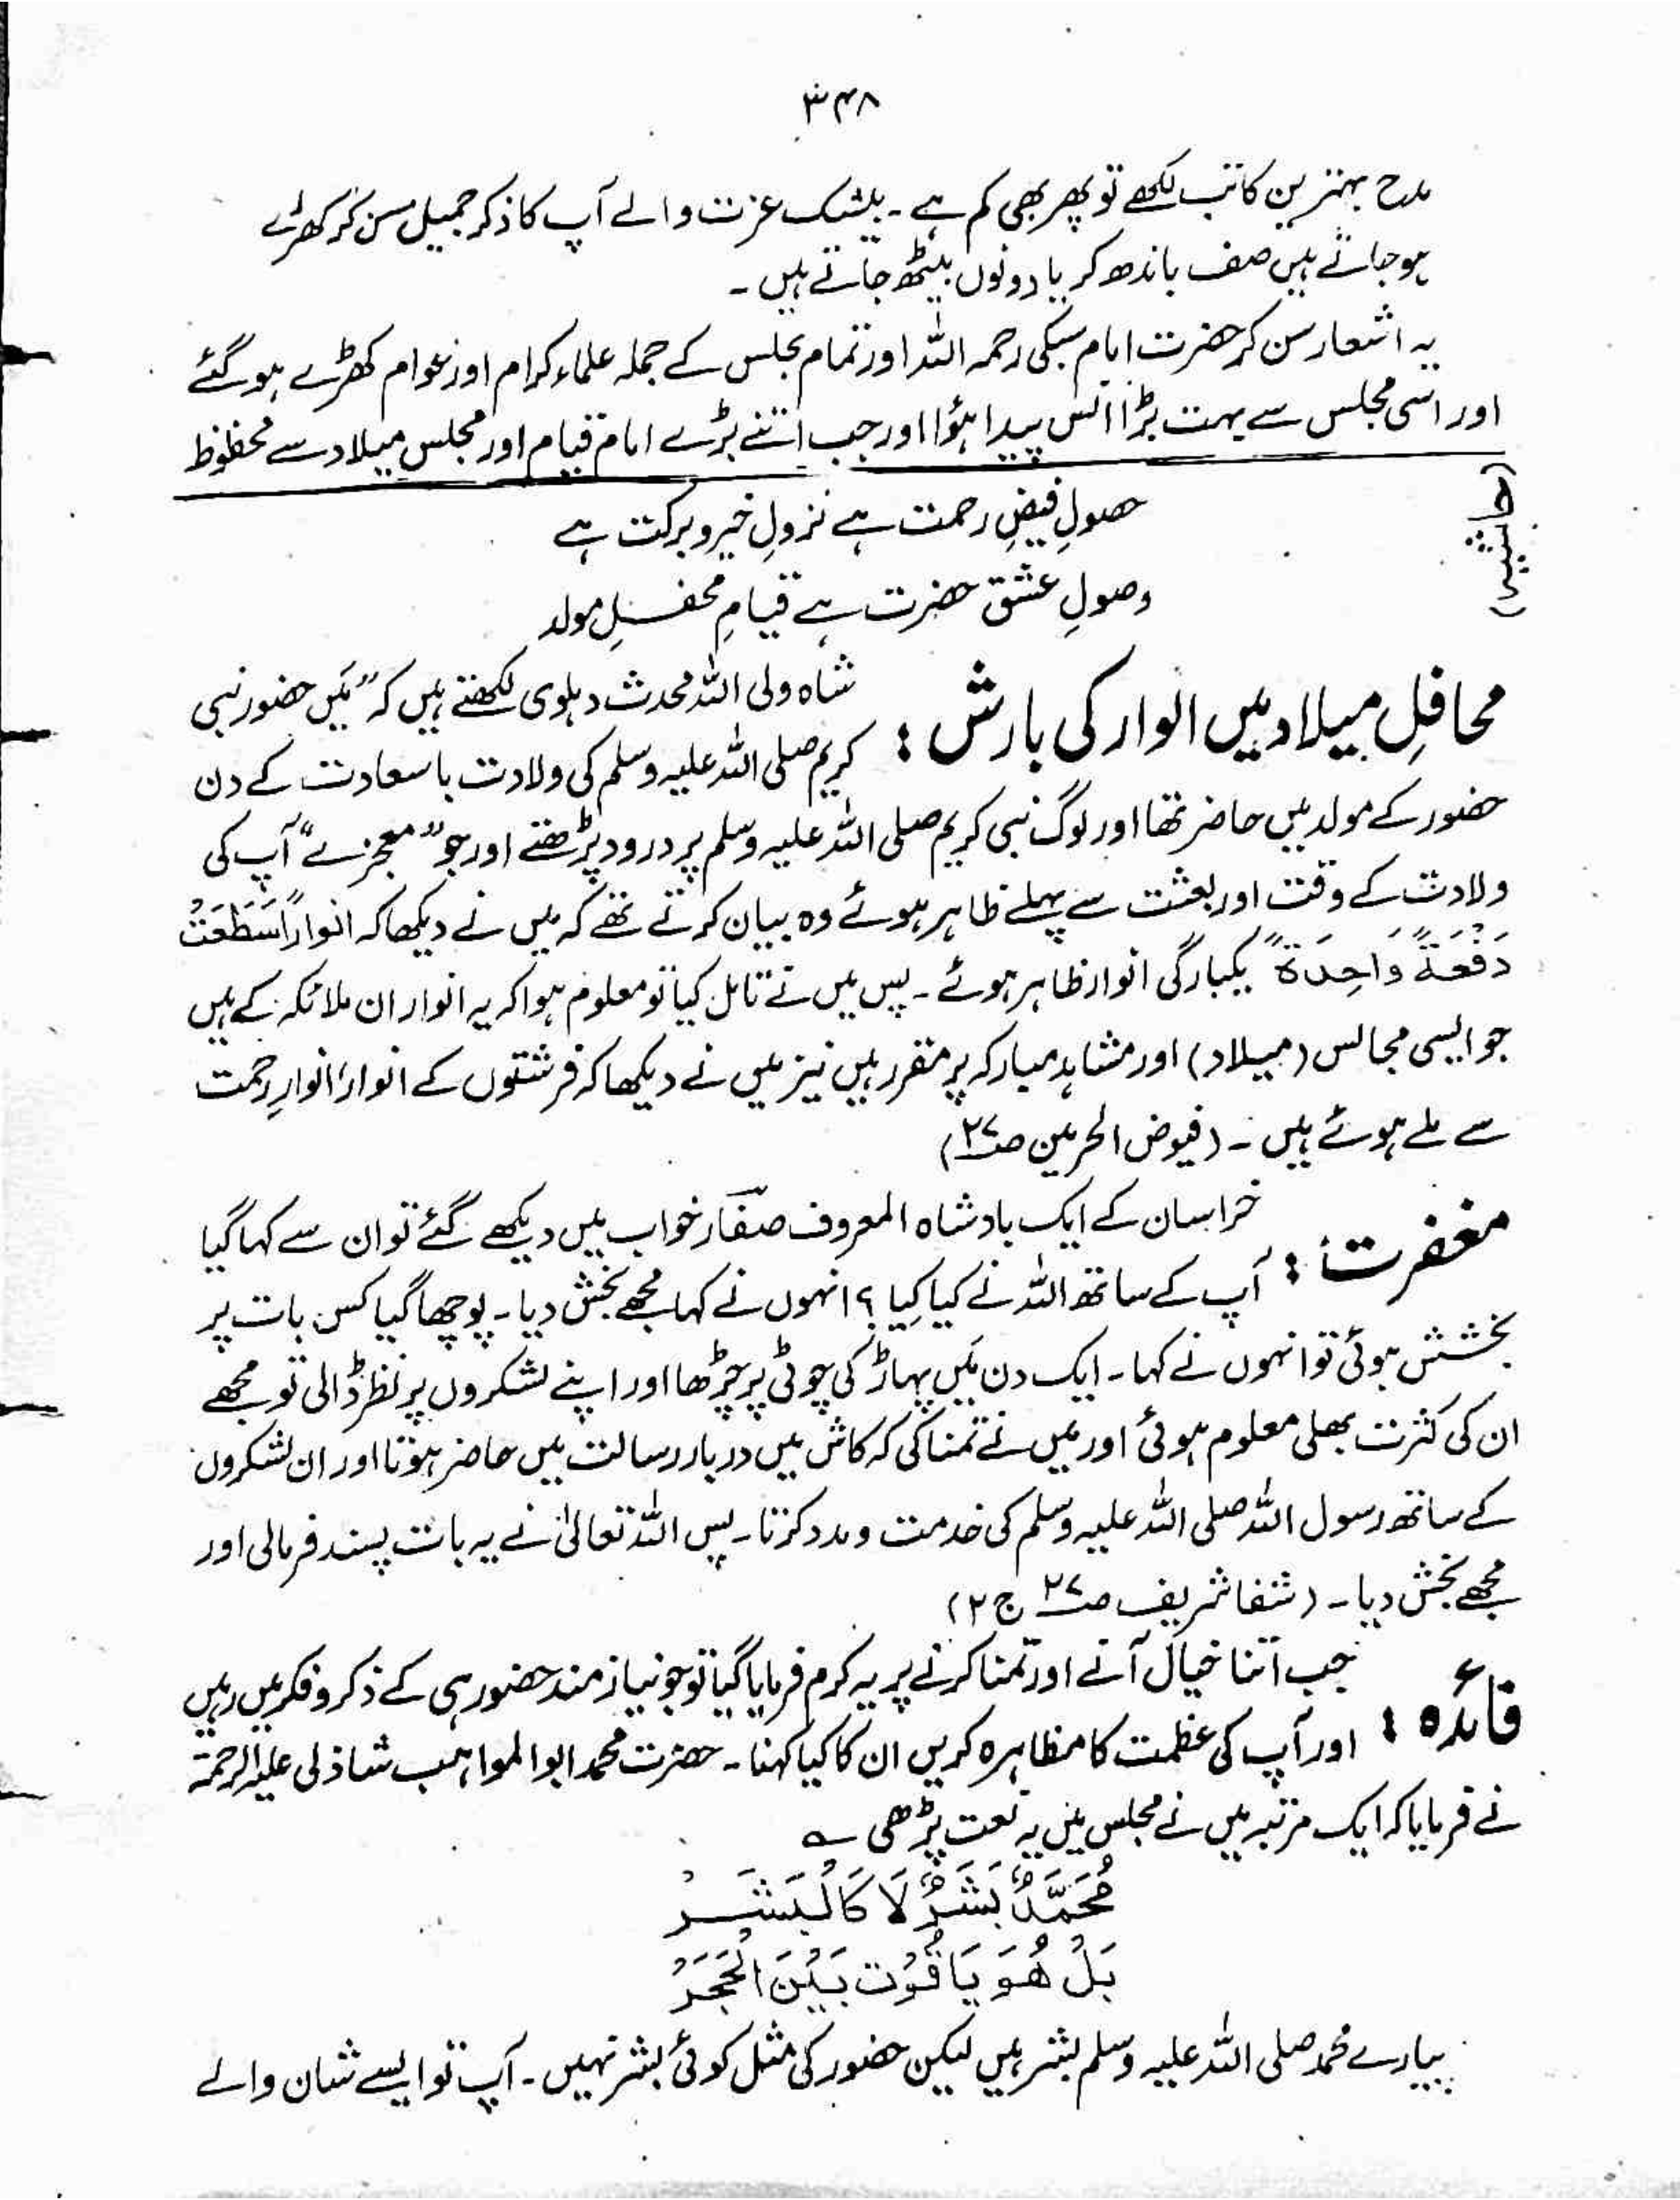 ۳۴۸
مدح بہترین کاتب لکھے تو پھر بھی کم ہے ۔ بیشک عزت والے آپ کا ذکر جمیل سن کر کھڑے
ہو جاتے ہیں صف باندھ کر یا دونوں بیٹھ جاتے ہیں ۔
یہ اشعار سن کر حضرت امام سبکی رحمہ اللہ اور تمام مجلس کے جملہ علماء کرام اور عوام کھڑے ہو گئے
اور اسی مجلس سے بہت بڑا انس پیدا ہؤا اور جب اتنے بڑے امام قیام اور مجلس میلاد سے محظوظ
(حاشیہ)
حصولِ فیضِ رحمت ہے نزولِ خیر و برکت ہے
وصولِ عشق حضرت ہے قیامِ محفلِ مولد
محافلِ میلاد میں انوار کی بارش : شاہ ولی اللہ محدث دہلوی لکھتے ہیں کہ ”میَں حضور نبی
کریم صلی اللہ علیہ وسلم کی ولادت باسعادت کے دن
حضور کے مولد میں حاضر تھا اور لوگ نبی کریم صلی اللہ علیہ وسلم پر درود پڑھتے اور جو ”معجزے“ آپ کی
ولادت کے وقت اور بعثت سے پہلے ظاہر ہوئے وہ بیان کرتے تھے کہ میں نے دیکھا کہ انواراً سَطَعَتْ
دَفْعَۃً وَاحِدَۃً یکبارگی انوار ظاہر ہوئے ۔ پس میں نے تامل کیا تو معلوم ہوا کہ یہ انوار ان ملائکہ کے ہیں
جو ایسی مجالس (میلاد) اور مشاہد مبارکہ پر مقرر ہیں نیز میں نے دیکھا کہ فرشتوں کے انوار، انوارِ رحمت
سے ملے ہوئے ہیں ۔ (فیوض الحرمین ص۲۷)
مغفرت : خراسان کے ایک بادشاہ المعروف صفّار خواب میں دیکھے گئے تو ان سے کہا گیا
آپ کے ساتھ اللہ نے کیا کِیا ؟ انہوں نے کہا مجھے بخش دیا ۔ پوچھا گیا کس بات پر
بخشش ہوئی تو انہوں نے کہا ۔ ایک دن میَں پہاڑ کی چوٹی پر چڑھا اور اپنے لشکروں پر نظر ڈالی تو مجھے
ان کی کثرت بھلی معلوم ہوئی اور میں نے تمنا کی کہ کاش میں دربار رسالت میں حاضر ہوتا اور ان لشکروں
کے ساتھ رسول اللہ صلی اللہ علیہ وسلم کی خدمت و مدد کرتا ۔ پس اللہ تعالیٰ نے یہ بات پسند فرمالی اور
مجھے بخش دیا ۔ (شفا شریف ص۲۷ ج ۲)
فائدہ : جب اتنا خیال آنے اور تمنا کرنے پر یہ کرم فرمایا گیا تو جو نیاز مند حضور ہی کے ذکر و فکر میں رہیں
اور آپ کی عظمت کا مظاہرہ کریں ان کا کیا کہنا ۔ حضرت محمد ابو المواہب شاذلی علیہ الرحمۃ
نے فرمایا کہ ایک مرتبہ میں نے مجلس میں یہ نعت پڑھی ؎
مُحَمَّدٌ بَشَرٌ لَا کَالْبَشَرْ
بَلْ ھُوَ یَاقُوْت بَیْنَ الْحَجَرْ
پیارے محمد صلی اللہ علیہ وسلم بشر ہیں لیکن حضور کی مثل کوئی بشر نہیں ۔ آپ تو ایسے شان والے